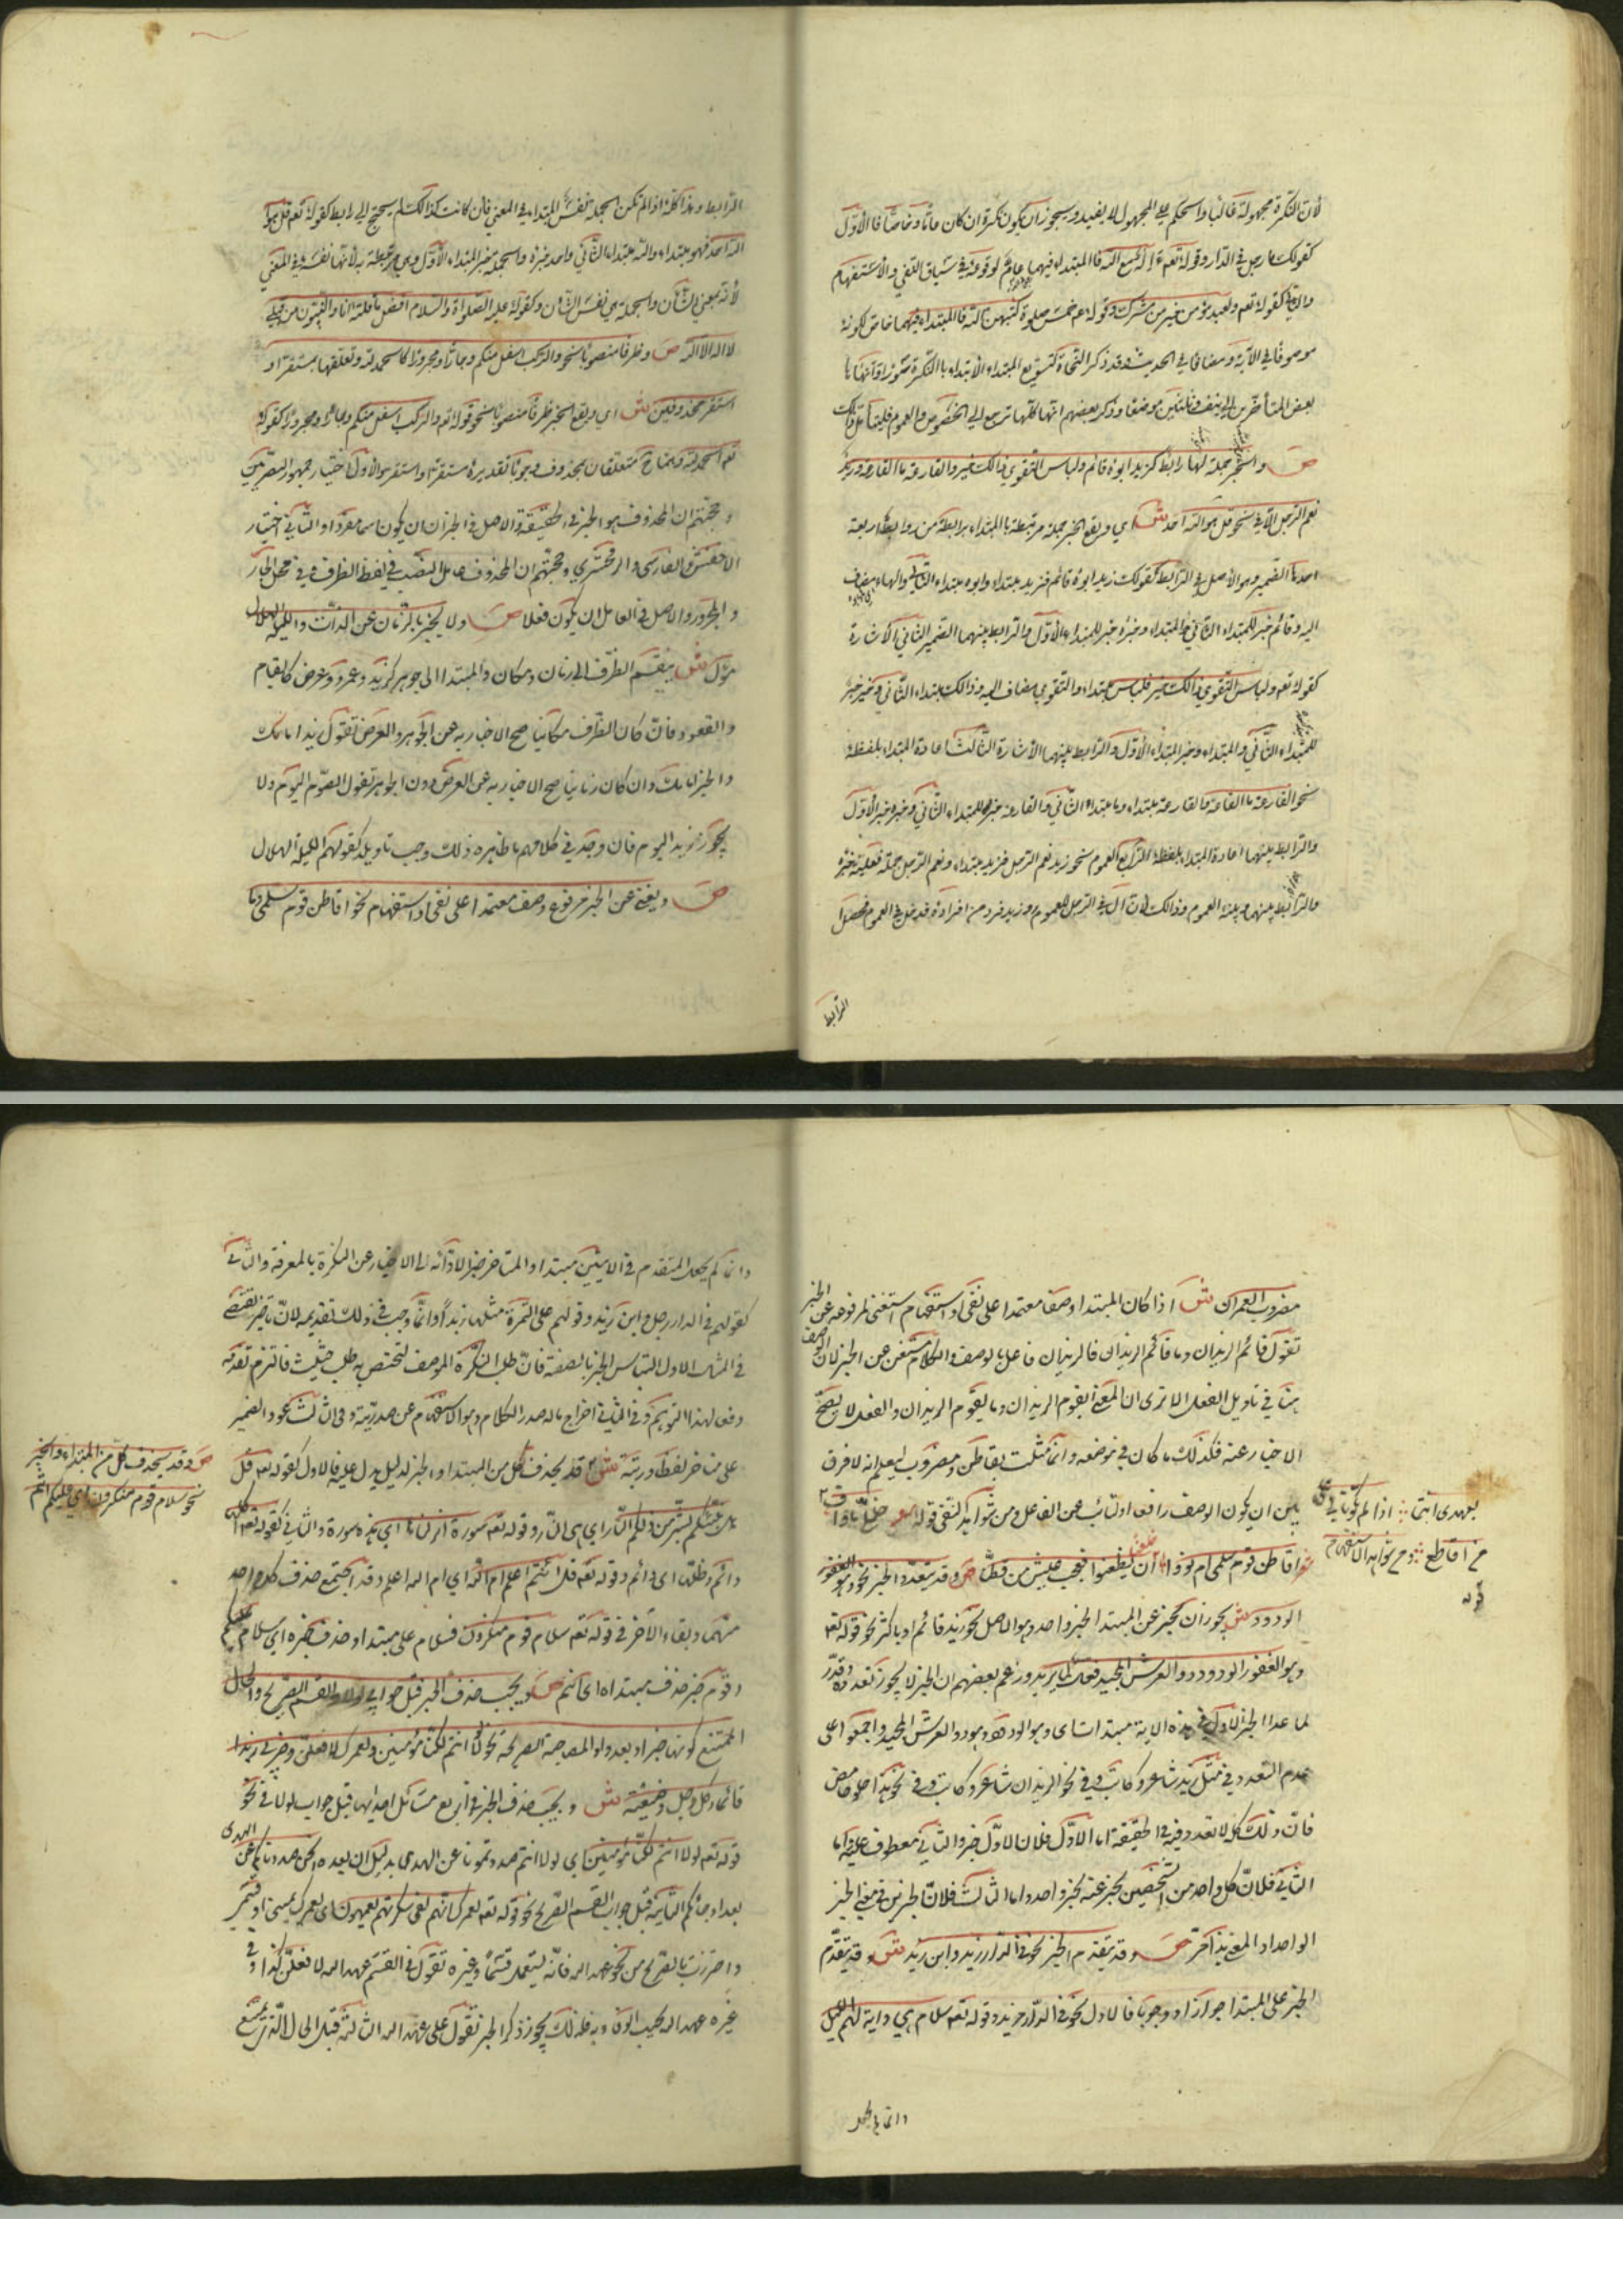 لأن النكرة مجهولة غالبا والحكم على المجهول لا يفيد ويجوز ان يكون نكرة ان كان عاما او خاصا فالاول
كقولك ما رجل في الدار وقوله تعه ءاله مع الله فالمبتداء فيهما عام لوقوعه في سياق النفي والاستفهام
والثاني كقوله تعه ولعبد مؤمن خير من مشرك وقوله عم خمس صلوة كتبهن الله فالمبتداء فيهما خاص لكونه
موصوفا في الآية ومضافا في الحديث وقد ذكر النحاة لتسويغ المبتداء الابتداء بالنكرة صورا وانهاها
بعض المتأخرين الى نيف وثلثين موضعا وذكر بعضهم انها كلها ترجع الى الخصوص والعموم فليتأمل ذالك
ص والخبر جملة لها رابط كزيد ابوه قائم ولباس التقوى ذالك خير والقارعة ما القارعة وزيد
نعم الرجل الا في نحو قل هو الله احد ش اي ويقع الخبر جملة مرتبطة بالمبتداء برابطة من روابط اربعة
احدها الضمير وهو الأصل في الرابط كقولك زيد ابوه قائم فزيد مبتداء وابوه مبتداء الثاني والهاء مضاف
اليه وقائم خبر للمبتداء الثاني والمبتداء وخبره خبر للمبتداء الأول والرابط بينهما الضمير الثاني الاشارة
كقوله تعه ولباس التقوى ذالك خير فلباس مبتداء والتقوى مضاف اليه وذالك مبتداء الثاني وخير خبر
للمبتداء الثاني والمبتداء وخبر المبتداء الأول والرابط بينهما الأشارة الثالث اعادة المبتداء بلفظه
نحو القارعة ما القارعة فالقارعة مبتداء وما مبتداء الثاني والقارعة خبر للمبتداء الثاني وخبره خبر الأول
والرابط بينهما اعادة المبتداء بلفظه الرابع العموم نحو زيد نعم الرجل فزيد مبتداء ونعم الرجل جملة فعلية خبره
والرابط بينهما وبينه العموم وذالك لان ال في الرجل للعموم وزيد فرد من افراده فدخل في العموم فحصل
الرابط
الرابط وهذا كله اذا لم تكن الجملة نفس المبتداء في المعنى فان كانت كذالك لم يحتج الى رابط كقوله تعه قل هو
الله احد فهو مبتداء والله مبتداء الثاني واحد خبره والجملة خبر المبتداء الأول وهي مرتبطة به لأنها نفسه في المعنى
لأنه بمعنى الشأن والجملة هي نفس الشأن وكقوله عليه الصلواة والسلام افضل ما قلته انا والنبيون من قبلي
لا اله الا الله ص وظرفا منصوبا نحو والركب اسفل منكم وجارا ومجرورا كالحمد لله وتعلقهما بمستقر او
استقر محذوفين ش اي ويقع الخبر ظرفا منصوبا نحو قوله تعه والركب اسفل منكم وجارا ومجرورا كقوله
تعه الحمد لله وهما ح متعلقان بمحذوف وجوبا تقديره مستقر او استقر والاول اختيار جمهور البصريين
وحجتهم ان المحذوف هو الخبر في الحقيقة والاصل في الخبر ان يكون اسما مفردا والثاني اختيار
الاخفش والفارسي والزمخشري وحجتهم ان المحذوف عامل النصب في لفظ الظرف وفي محل الجار
والمجرور والاصل في العامل ان يكون فعلا ص ولا يخبر بالزمان عن الذات والليلة الهلال
مؤول ش ينقسم الظرف الى زمان ومكان والمبتدا الى جوهر كزيد وعمرو وعرض كالقيام
والقعود فان كان الظرف مكانيا صح الاخبار به عن الجوهر والعرض تقول زيد امامك
والخير امامك وان كان زمانيا صح الاخبار به عن العرض دون الجوهر تقول الصوم اليوم ولا
يجوز زيد اليوم فان وجد في كلامهم ما ظاهره ذلك وجب تاويله كقولهم الليلة الهلال
ص ويغني عن الخبر مرفوع وصف معتمد على نفي او استفهام نحو اقاطن قوم سلمى وما
مضروب العمران ش اذا كان المبتدا وصفا معتمدا على نفي او استفهام استغنى بمرفوعه عن الخبر
تقول اقائم الزيدان وما قائم الزيدان فالزيدان فاعل بالوصف والكلام مستغن عن الخبر لان الوصف
هنا في تاويل الفعل الا ترى ان المعنى ايقوم الزيدان وما يقوم الزيدان والفعل لا يصح
الاخبار عنه فكذلك ما كان في موضعه وانما مثلت بقاطن ومضروب ليعلم انه لا فرق
بين ان يكون الوصف رافعا او لنائب عن الفاعل ومن شواهد النفي قوله خليلي ما واف
بعهدي انتما اذا لم تكونا لي على
من اقاطع ومن شواهد الاستفهام
قوله
اقاطن قوم سلمى ام نووا ظعنا ان يظعنوا فعجيب عيش من قطنا ص وقد يتعدد الخبر نحو وهو الغفور
الودود ش يجوز ان يخبر عن المبتدا الخبر واحد وهو الاصل نحو زيد قائم او باكثر نحو قوله تعه
وهو الغفور الودود ذو العرش المجيد فعال لما يريد وزعم بعضهم ان الخبر لا يجوز تعدده وقدر
لما عدا الخبر الاول في هذه الاية مبتدات اي وهو الودود وهو ذو العرش المجيد واجمعوا على
عدم التعدد في مثل زيد شاعر وكاتب وفي نحو الزيدان شاعر وكاتب وفي نحو هذا حلو حامض
فان ذلك كله لا تعدد فيه في الحقيقة اما الاول فلان الاول خبر والثاني معطوف عليه واما
الثاني فلان كل واحد من الشخصين مخبر عنه بخبر واحد واما الثالث فلان الخبرين في معنى الخبر
الواحد اذ المعنى هذا مز ص وقد يتقدم الخبر نحو في الدار زيد واين زيد ش وقد يتقدم
الخبر على المبتدا جوازا ووجوبا فالاول نحو في الدار زيد وقوله تعه سلام هي واية لهم الليل
وانما لم يجعل
وانما لم يجعل المتقدم في الايتين مبتدا والمتاخر خبرا لادائه الى الاخبار عن النكرة بالمعرفة والثاني
كقولهم في الدار رجل واين زيد وقولهم على التمرة مثلها زبدا وانما وجب في ذلك تقديمه لان تاخيره يقتضي
في المثال الاول التباس الخبر بالصفة فان طلب النكرة الوصف لتختص به طلب حثيث فالتزم تقديمه
دفعا لهذا التوهم وفي الثاني اخراج ما له صدر الكلام وهو الاستفهام عن صدريته وفي الثالث عود الضمير
على متاخر لفظا ورتبة ش قد يحذف كل من المبتدا والخبر لدليل يدل عليه فالاول كقوله تعه قل
ص وقد يحذف كل من المبتداء والخبر
نحو سلام قوم منكرون اي عليكم انتم
افانبئكم بشر من ذلكم النار اي هي النار وقوله تعه سورة انزلناها اي هذه سورة والثاني كقوله تعه اكلها
دائم وظلها اي دائم وقوله تعه قل ءانتم اعلم ام الله اي ام الله اعلم وقد اجتمع حذف كل واحد
منهما وبقاء الاخر في قوله تعه سلام قوم منكرون فسلام على مبتدا وحذف خبره اي سلام عليكم
وقوم خبر حذف مبتداه اي انتم ص ويجب حذف الخبر قبل جوابي لولا والقسم الصريح والحال
الممتنع كونها خبرا وبعد واو المصاحبة الصريحة نحو لولا انتم لكنا مؤمنين ولعمرك لافعلن وضربي زيدا
قائما وكل رجل وضيعته ش ويجب حذف الخبر في اربع مسائل احداها قبل جواب لولا في نحو
قوله تعه لولا انتم لكنا مؤمنين اي لولا انتم صددتمونا عن الهدى بدليل ان بعده انحن صددناكم عن الهدى
بعد اذ جاءكم الثانية قبل جواب القسم الصريح نحو قوله تعه لعمرك انهم لفي سكرتهم يعمهون اي لعمرك يميني او قسمي
واحترزت بالصريح من نحو عهد الله فانه يستعمل قسما وغيره تقول في القسم عهد الله لافعلن كذا وفي
غيره عهد الله يجب الوفاء به فلذلك يجوز ذكر الخبر تقول على عهد الله الثالثة قبل الحال التي يمتنع